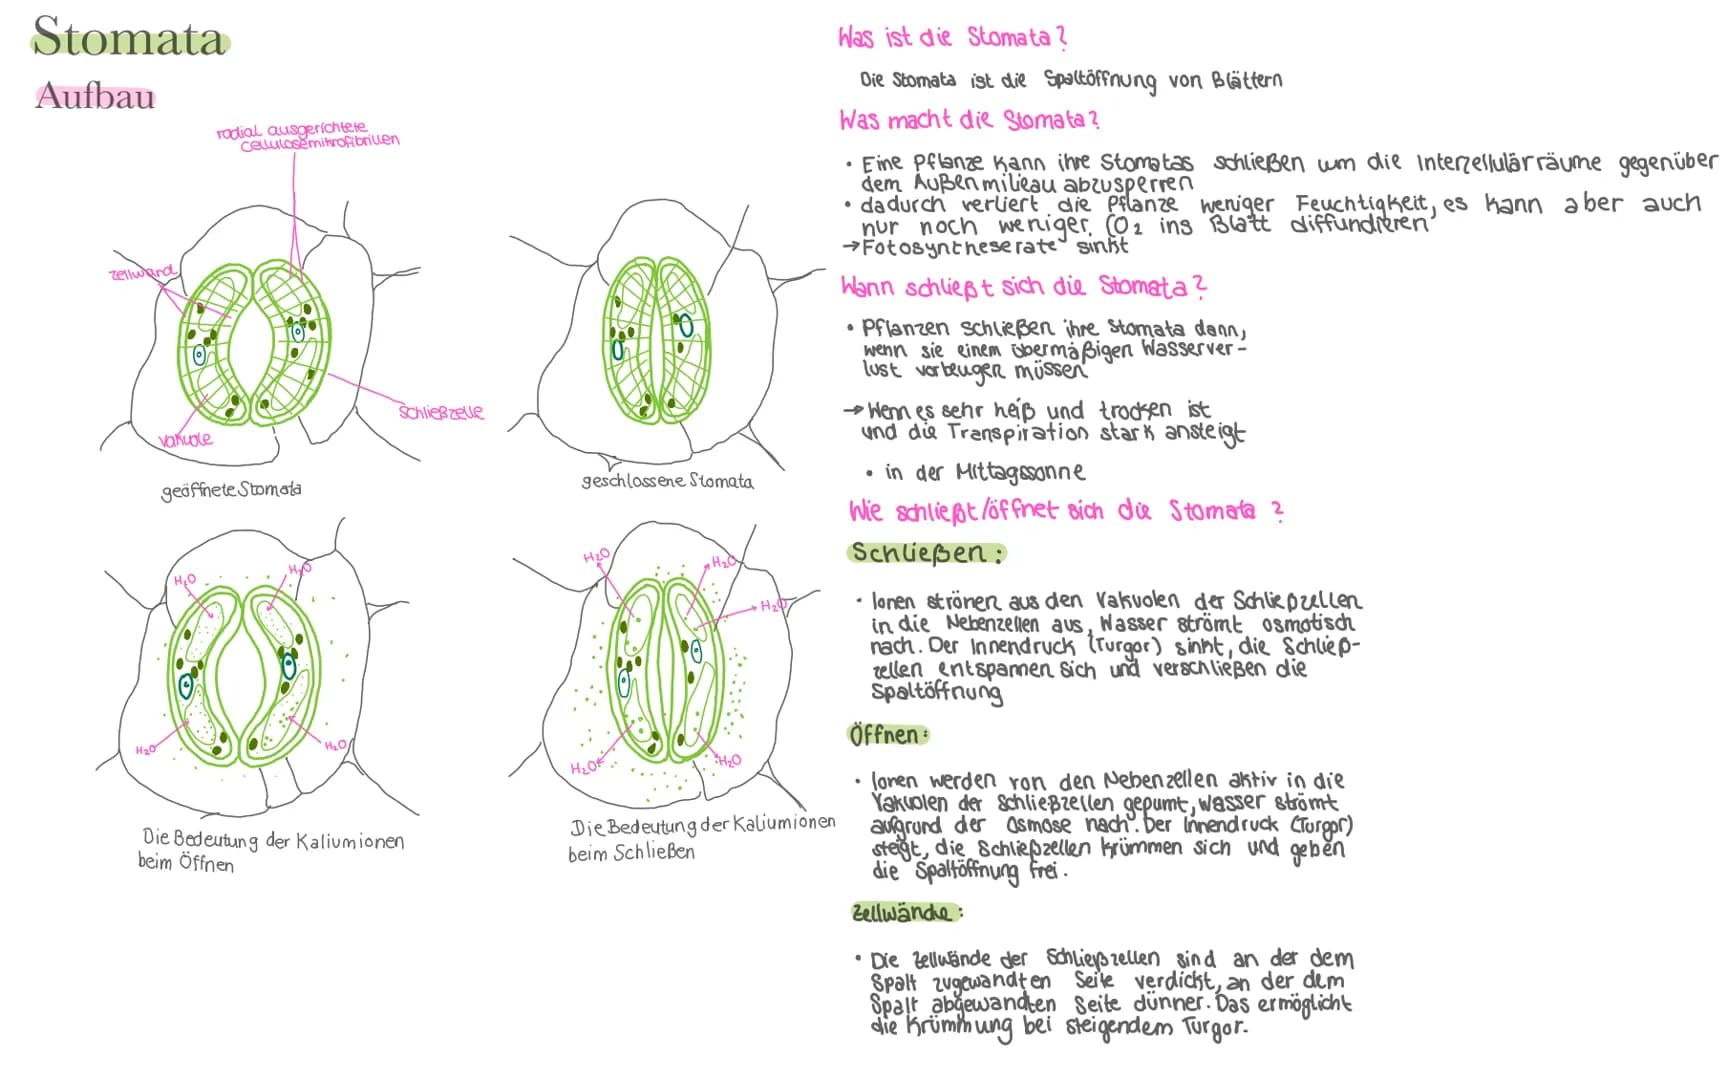 Stomata
Aufbau
radial ausgerichtete
Cellulosemikrofibrillen
Zellwand
Schließzelle
Vakuole
geöffnete Stomata
geschlossene Stomata
H₂O
H₂O
H₂O
H₂O
Die Bedeutung der Kaliumionen
beim Öffnen
H₂O
H₂O
H₂O
H₂O
H₂O
Die Bedeutung der Kaliumionen
beim Schließen
Was ist die Stomata?
Die Stomata ist die Spaltöffnung von Blättern
Was macht die Stomata?
• Eine Pflanze kann ihre Stomatas schließen um die Interzellulärräume gegenüber
dem Außenmilieau abzusperren
• dadurch verliert die Pflanze weniger Feuchtigkeit, es kann aber auch
nur noch weniger CO₂ ins Blatt diffundieren
→ Fotosyntheserate sinkt
Wann schließt sich die Stomata?
• Pflanzen schließen ihre Stomata dann,
wenn sie einem übermäßigen Wasserver-
lust vorbeugen müssen
→ Wenn es sehr heiß und trocken ist
und die Transpiration stark ansteigt
• in der Mittagssonne
Wie schließt/öffnet sich die Stomata?
Schließen:
• Ionen strönen aus den Vakuolen der Schließzellen
in die Nebenzellen aus, Wasser strömt osmotisch
nach. Der Innendruck (Turgor) sinkt, die Schließ-
zellen entspannen sich und verschließen die
Spaltöffnung
Öffnen:
• Ionen werden von den Nebenzellen aktiv in die
Vakuolen der Schließzellen gepumt, Wasser strömt
aufgrund der Osmose nach. Der Innendruck (Turgor)
steigt, die Schließzellen krümmen sich und geben
die Spaltöffnung frei.
Zellwände:
• Die Zellwände der Schließzellen sind an der dem
Spalt zugewandten Seite verdickt, an der dem
Spalt abgewandten Seite dünner. Das ermöglicht
die Krümmung bei steigendem Turgor.